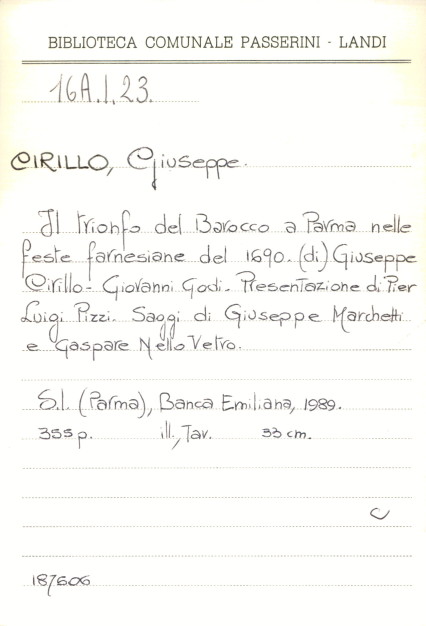 BIBLIOTECA COMUNALE PASSERINI - LANDI
16A.I.23.
CIRILLO, Giuseppe.
Il trionfo del Barocco a Parma nelle
feste farnesiane del 1690. (di) Giuseppe
Cirillo - Giovanni Godi. Presentazione di Pier
Luigi Pizzi. Saggi di Giuseppe Marchetti
e Gaspare Nello Vetro.
S.l. (Parma), Banca Emiliana, 1989.
355 p. ill., Tav. 33 cm.
C
187606